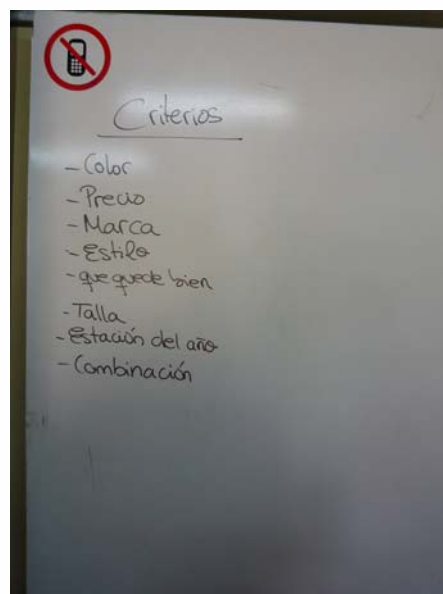 Criterios
- Color
- Precio
- Marca
- Estilo
- que quede bien
- Talla
- Estación del año
- Combinación